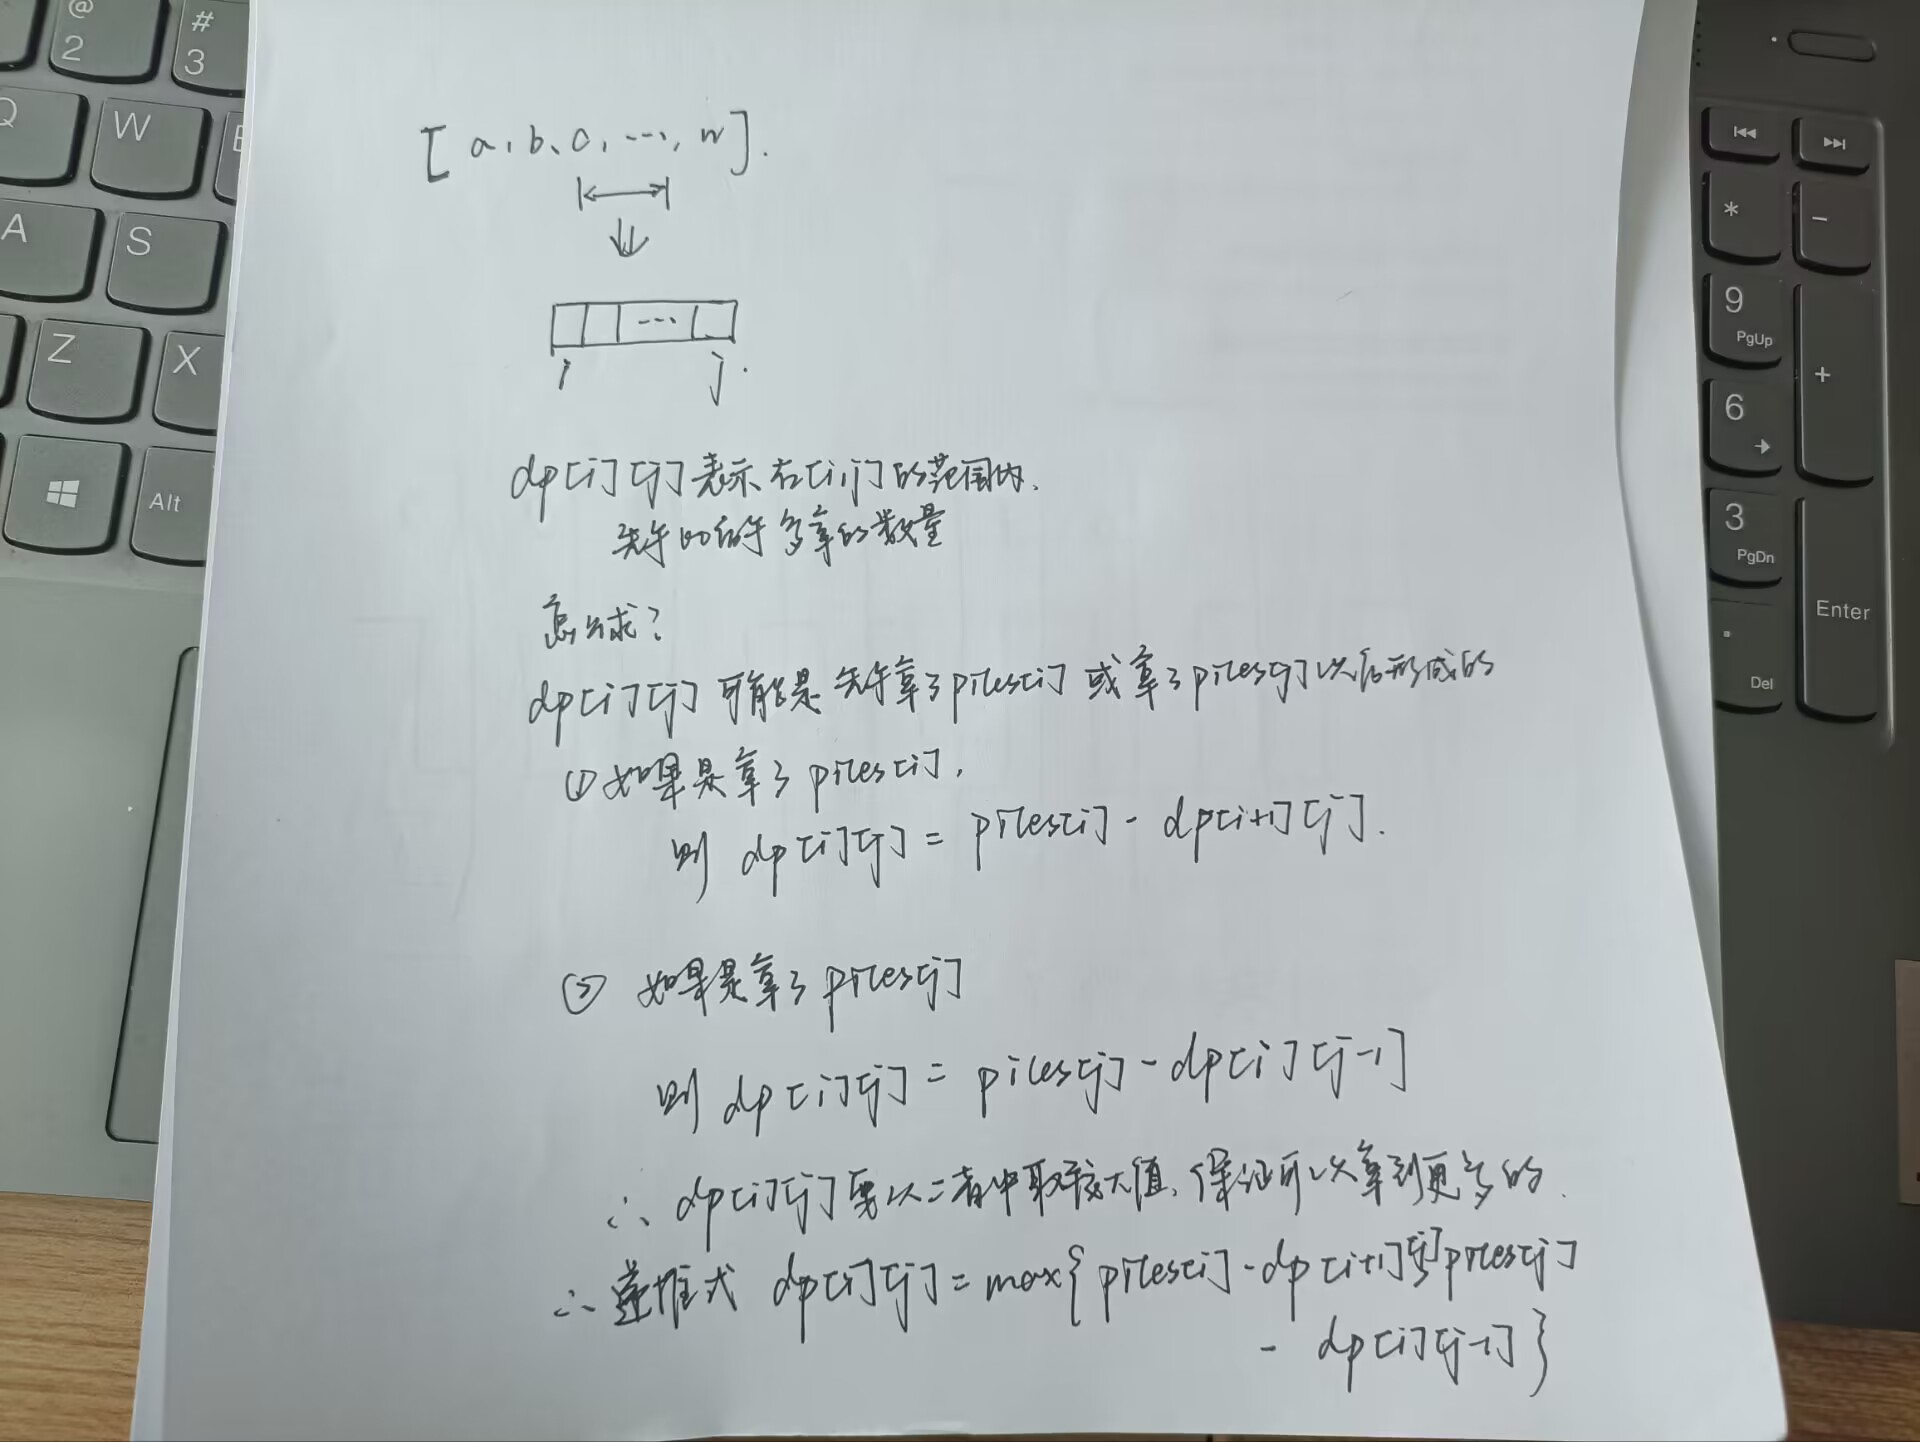 @
2
#
3
Q
W
E
A
S
Z
X
Alt
*
-
9
PgUp
+
6
3
PgDn
Enter
.
Del
[a, b, c, ..., n].
...
i
j.
dp[i][j]表示在[i,j]的范围内,
先手比后手多拿的数量
怎么求?
dp[i][j]可能是先手拿了piles[i]或拿了piles[j]以后形成的
①如果是拿了piles[i],
则 dp[i][j] = piles[i] - dp[i+1][j].
② 如果是拿了piles[j]
则 dp[i][j] = piles[j] - dp[i][j-1]
∴ dp[i][j]要从二者中取较大值,保证可以拿到更多的.
∴ 递推式 dp[i][j] = max{piles[i] - dp[i+1][j] piles[j]
- dp[i][j-1]}